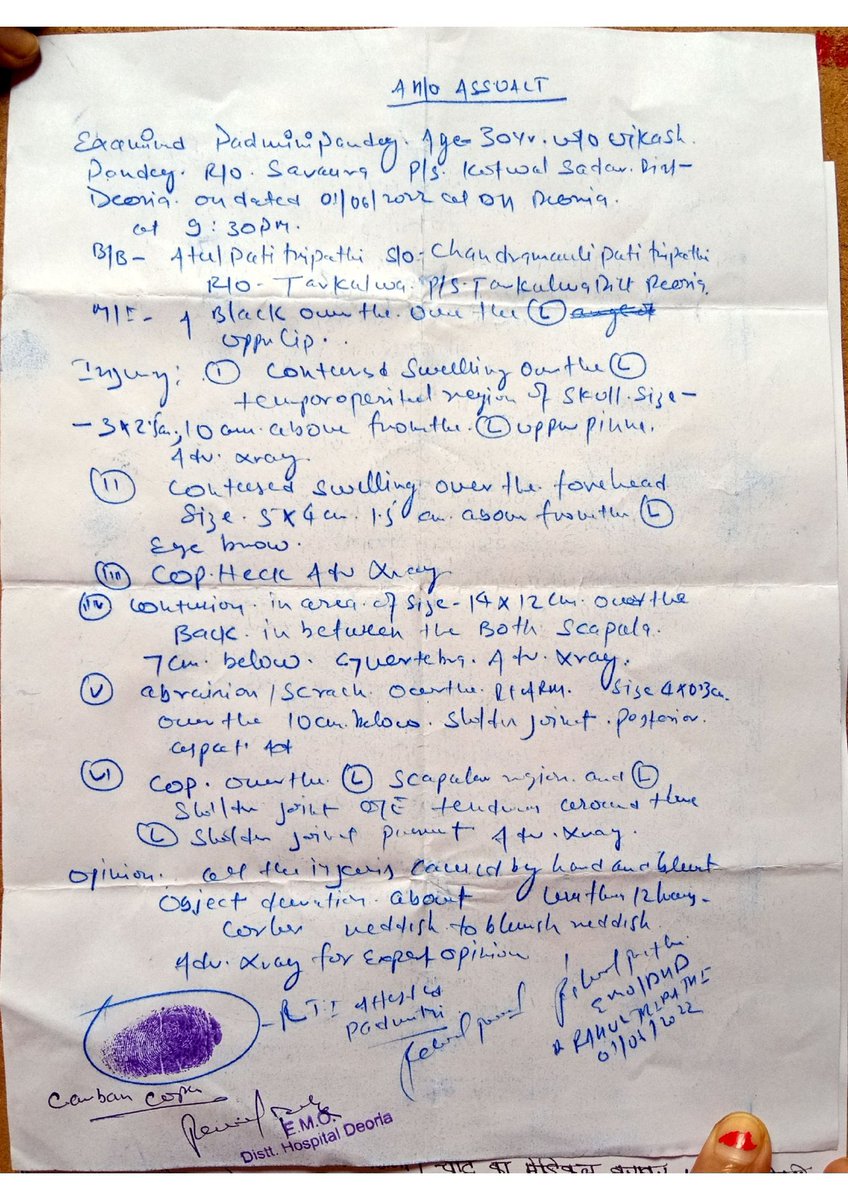 A H/O ASSUALT
Examind Padmini Pandey. Age- 30 Yr. w/o vikash
Pandey. R/O. Savaura P/S. Kotwal Sadar. Dist-
Deoria. on dated 01/06/2022 at DH Deoria.
at 9:30 PM.
B/B- Atul Pati tripathi S/O- Chandramauli pati tripathi
R/O- Tarkulwa. P/S. Tarkulwa Distt Deoria.
M/I- A Black over the. over the (L)
uppr Lip..
Injury: (I) Contused swelling over the (L)
temporoperital region of skull. Size-
- 3 x 2.5cm, 10 cm. above from the. (L) upper pinna.
Adv. xray.
(II) Contused swelling over the forehead
Size. 5 x 4 cm. 1.5 cm. above from the (L)
Eye brow.
(III) COP. Neck Adv Xray
(IV) Contusion. in area of size- 14 x 12 cm. over the
Back. in between the Both Scapula.
7cm. below. C7 vertebra. Adv. Xray.
(V) abrainion / scrach. over the. Rt ARM. size 4 x 0.3cm
over the 10 cm. below. sholder joint. posterior.
aspect.
(VI) COP. over the. (L) scapular region. and (L)
sholder joint O/E tendurn around the
(L) sholder joint present Adv. Xray.
Opinion. all the injeris caused by hard and blunt
Object duration about within 12 hour-
reddish to bluish reddish.
Adv. Xray for Expert opinion
RTI Attested
Padmini
EMO/DHD
RAHUL TRIPATHI
01/06/2022
Carban copy
E.M.O.
Distt. Hospital Deoria